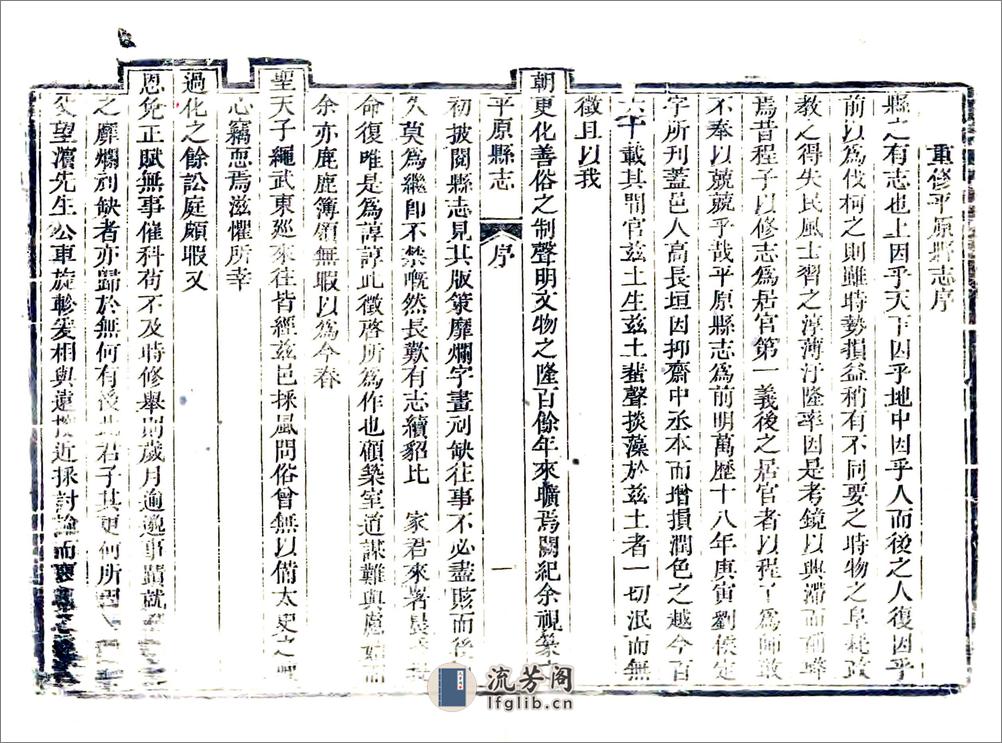 重修平原縣志序
縣之有志也上因乎天下因乎地中因乎人而後之人復因乎
前以為伐柯之則雖時勢損益稍有不同要之時物之阜耗政
教之得失民風士習之淳薄汙隆率因是考鏡以興滯而補
焉昔程子以修志為居官第一義後之居官者以程子為師敢
不奉以兢兢乎哉平原縣志為前明萬歷十八年庚寅劉侯定
字所刊蓋邑人高長垣因抑齋中丞本而增損潤色之越今百
六十載其間官茲土生茲土蜚聲掞藻於茲土者一切泯而無
徵且以我
朝更化善俗之制聲明文物之隆百餘年來曠焉闕紀余視篆
平原縣志 序 一
初披閱縣志見其版策靡爛字畫刓缺往事不必盡賅而後
久莫為繼即不禁慨然長歎有志續貂比 家君來署晨
命復唯是為諄諄此徵啓所為作也顧築室道謀難與慮始而
余亦鹿鹿簿領無暇以為今春
聖天子繩武東廵來往皆經茲邑採風問俗曾無以備太史之
心竊恧焉滋懼所幸
過化之餘訟庭頗暇又
恩免正賦無事催科苟不及時修舉則歲月遄邁事蹟就
之靡爛刓缺者亦歸於無何有後此君子其更何所
望濱先生公車旋軫爰相與遠搜近採討論而裒
流芳阁
lfglib.cn